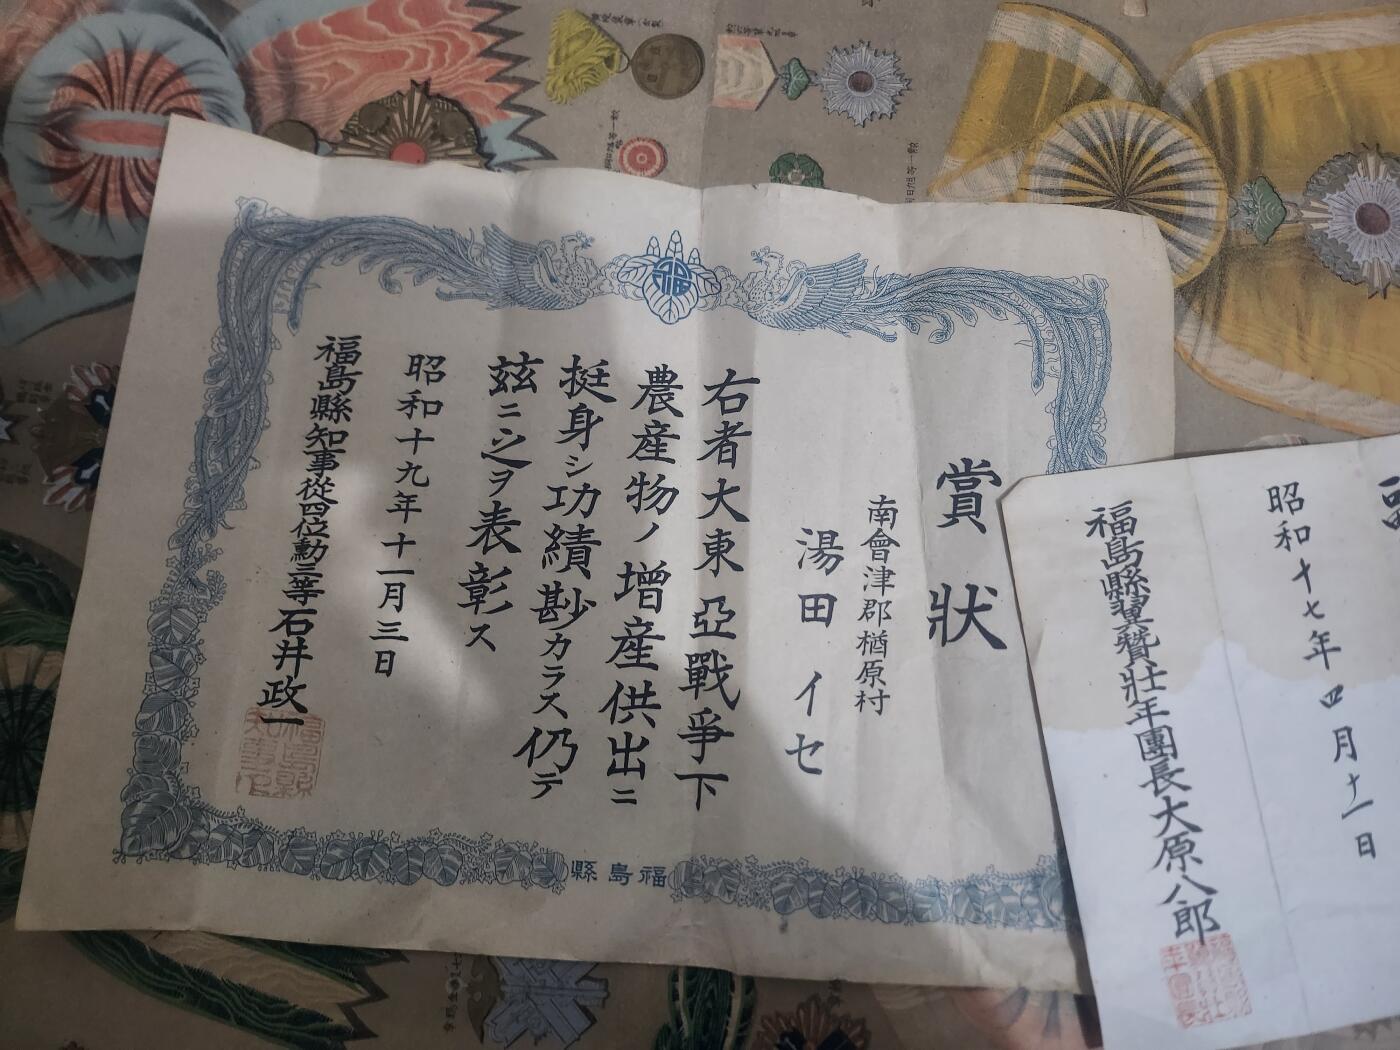 賞狀
南會津郡楢原村
湯田イセ
右者大東亞戰爭下
農産物ノ增産供出ニ
挺身シ功績尠カラス仍テ
玆ニ之ヲ表彰ス
昭和十九年十一月三日
福島縣知事從四位勳三等石井政一
福島縣
昭和十七年四月十一日
福島縣翼贊壯年團長大原八郎